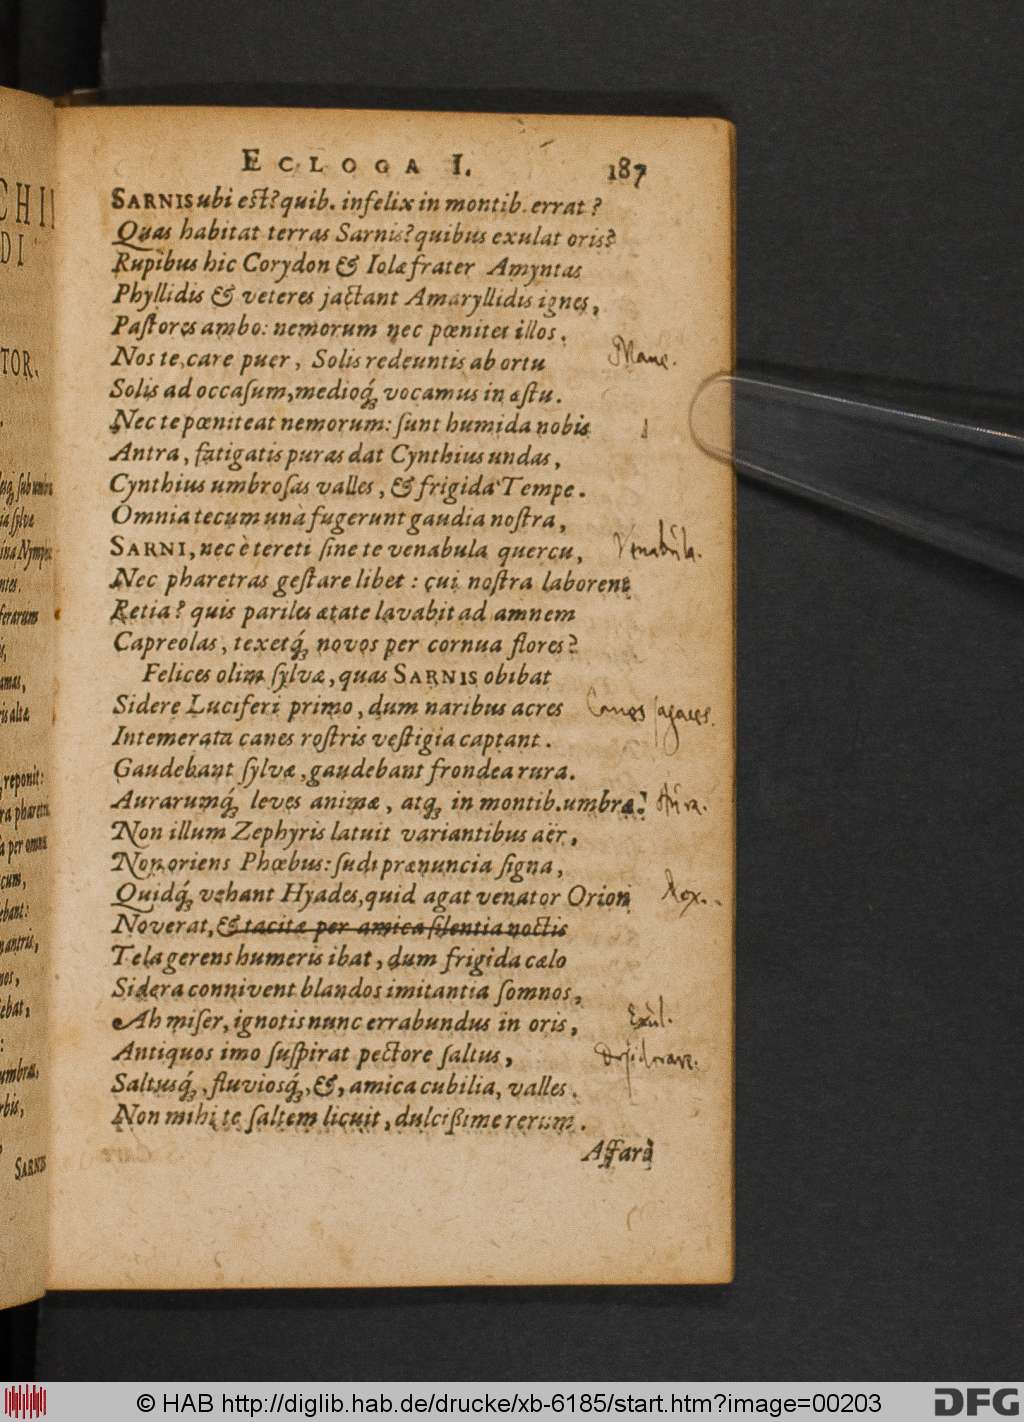 ECLOGA I. 187
SARNIS ubi est? quib. infelix in montib. errat?
Quas habitat terras Sarnis? quibus exulat oris?
Rupibus hic Corydon & Iolæ frater Amyntas
Phyllidis & veteres jactant Amaryllidis ignes,
Paſtores ambo: nemorum nec pœnitet illos.
Nos te, care puer, Solis redeuntis ab ortu Mane.
Solis ad occaſum, medioq́; vocamus in æſtu.
Nec te pœniteat nemorum: ſunt humida nobis
Antra, fatigatis puras dat Cynthius undas,
Cynthius umbroſas valles, & frigida Tempe.
Omnia tecum unà fugerunt gaudia noſtra,
SARNI, nec è tereti ſine te venabula quercu, Venabula.
Nec pharetras geſtare libet: cui noſtra laborent
Retia? quis pariles ætate lavabit ad amnem
Capreolas, texetq́; novos per cornua flores?
Felices olim ſylvæ, quas SARNIS obibat
Sidere Luciferi primo, dum naribus acres Canes ſagaces.
Intemerata canes roſtris veſtigia captant.
Gaudebant ſylvæ, gaudebant frondea rura.
Aurarumq́; leves animæ, atq; in montib. umbræ:
Non illum Zephyris latuit variantibus aër,
Non oriens Phœbus: ſudi prænuncia ſigna,
Quidq́; vehant Hyades, quid agat venator Orion Nox.
Noverat, & tacitæ per amica ſilentia noctis
Tela gerens humeris ibat, dum frigida cælo
Sidera connivent blandos imitantia ſomnos,
Ah miſer, ignotis nunc errabundus in oris, Exul.
Antiquos imo ſuſpirat pectore ſaltus, Deſiderare.
Saltusq́;, fluviosq́;, &, amica cubilia, valles.
Non mihi te ſaltem licuit, dulcißime rerum.
Affari
CHII
DI
TOR.
ia ſylvæ
ferarum
reponit:
cum,
ebat,
umbræ,
SARNIS
© HAB http://diglib.hab.de/drucke/xb-6185/start.htm?image=00203
DFG